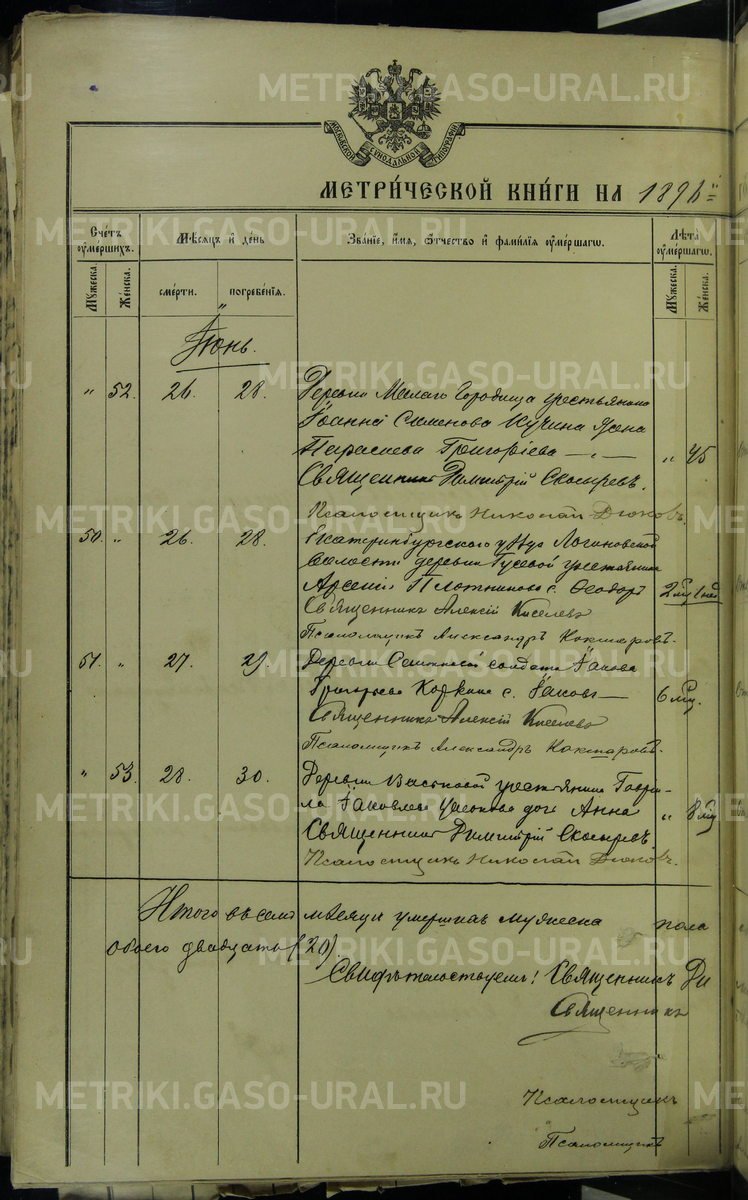 МОСКОВСКОЙ СѴНОДАЛЬНОЙ ТИПОГРАФІИ
МЕТРИ́ЧЕСКОЙ КНИ́ГИ НА 1896
Сче́тъ оумершихъ. Мѣсяцъ и день Зва́ніе, имя, Отчество и фами́лія оумершаго. Лѣта оумершаго.
Мужеска. Же́нска. сме́рти. погребе́нія. Мужеска. Же́нска.
Іюнь.
" 52. 26. 28. Деревни Малаго Городища крестьянина
Іоанна Сименова Кучина жена
Параскева Григоріева — " — " 45
Священникъ Димитрій Скосыревъ.
Псаломщикъ Николай Дюковъ.
50. " 26. 28. Екатеринбургскаго уѣзда Логиновской
волости деревни Гусевой крестьянина
Арсенія Плотникова с. Ѳеодоръ 2 м. 1 нед
Священникъ Алексій Киселевъ
Псаломщикъ Александръ Кокшаровъ.
51. " 27. 29. Деревни солдата Іакова
Григорьева Коркина с. Іаковъ — 6 мц.
Священникъ Алексій Киселевъ
Псаломщикъ Александръ Кокшаровъ.
" 53. 28. 30. Деревни Васьковой крестьянина Гаврі-
ла Іаковлева дочь Анна " 8 мц
Священникъ Димитрій Скосыревъ.
Псаломщикъ Николай Дюковъ.
Итого въ семъ мѣсяцѣ умершихъ мужеска пола
обоего двадцать (20)
Свидѣтельствуемъ: Священникъ Ди
Священникъ
Псаломщикъ
Псаломщикъ
METRIKI.GASO-URAL.RU